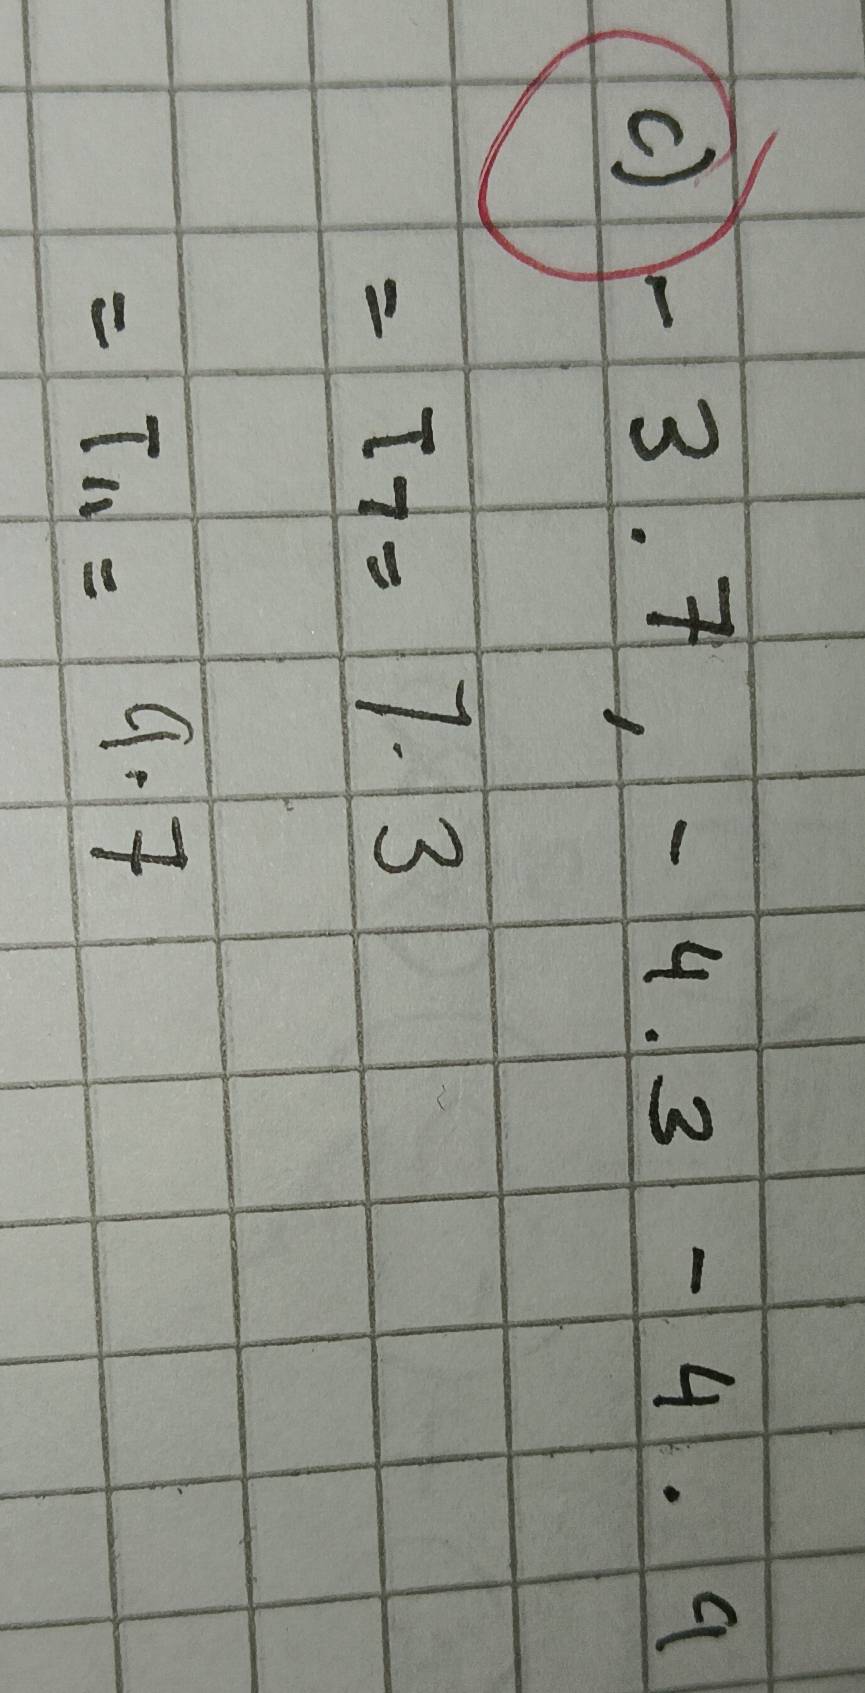 c) - 3.7, - 4.3 - 4.9
= T7 = 7.3
= T11 = 9.7